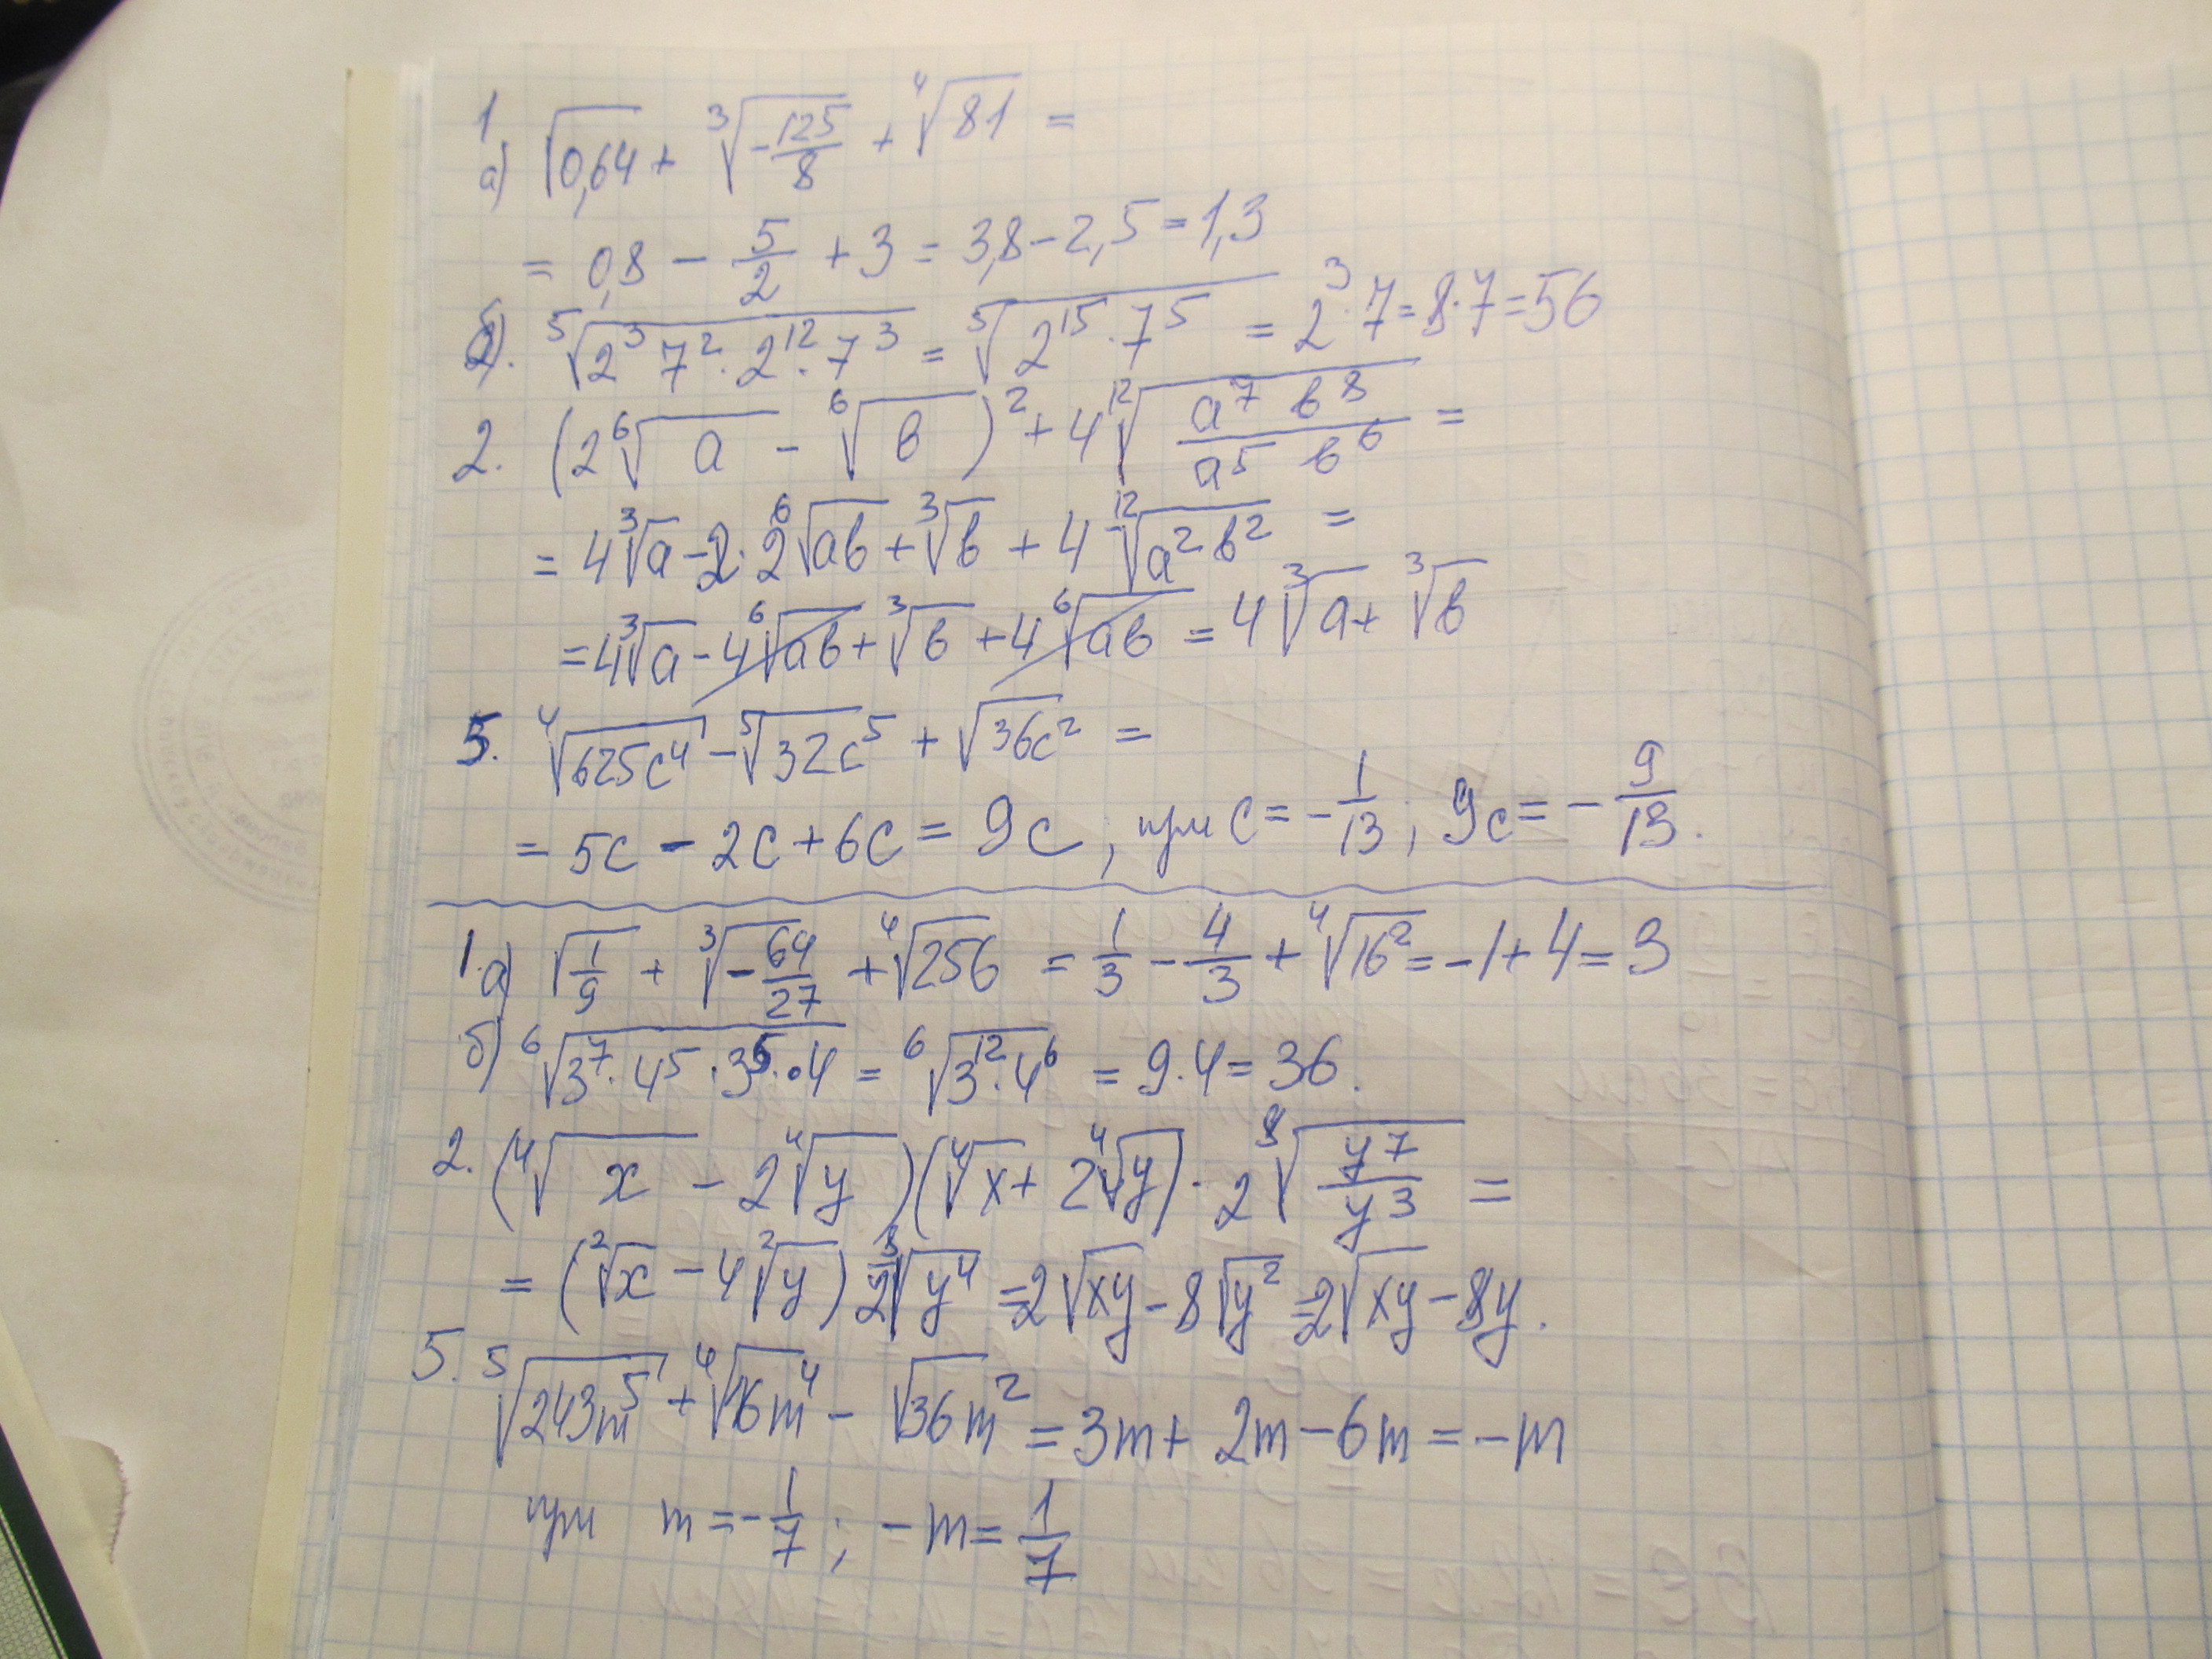 1
а) √0,64 + ∛(-125/8) + ⁴√81 =
= 0,8 - 5/2 + 3 = 3,8 - 2,5 = 1,3
б). ⁵√(2³ 7² · 2¹² · 7³) = ⁵√(2¹⁵ · 7⁵) = 2³ · 7 = 8 · 7 = 56
2. (2⁶√a - ⁶√b)² + 4 ¹²√(a⁷ b⁸ / a⁵ b⁶) =
= 4∛a - 2 · 2⁶√ab + ∛b + 4 ¹²√(a² b²) =
= 4∛a - 4⁶√ab + ∛b + 4⁶√ab = 4∛a + ∛b
5. ⁴√(625c⁴) - ⁵√(32c⁵) + √(36c²) =
= 5c - 2c + 6c = 9c, при c = -1/13; 9c = -9/13.
1.а) √(1/9) + ∛(-64/27) + ⁴√256 = 1/3 - 4/3 + ⁴√(16²) = -1 + 4 = 3
б) ⁶√(3⁷ · 4⁵ · 3⁵ · 4) = ⁶√(3¹² · 4⁶) = 9 · 4 = 36.
2. (⁴√x - 2⁴√y)(⁴√x + 2⁴√y) · 2⁸√(y⁷/y³) =
= (²√x - 4²√y) 2⁸√(y⁴) = 2√xy - 8√(y²) = 2√xy - 8y.
5. ⁵√(243m⁵) + ⁴√(16m⁴) - √(36m²) = 3m + 2m - 6m = -m
при m = -1/7; -m = 1/7